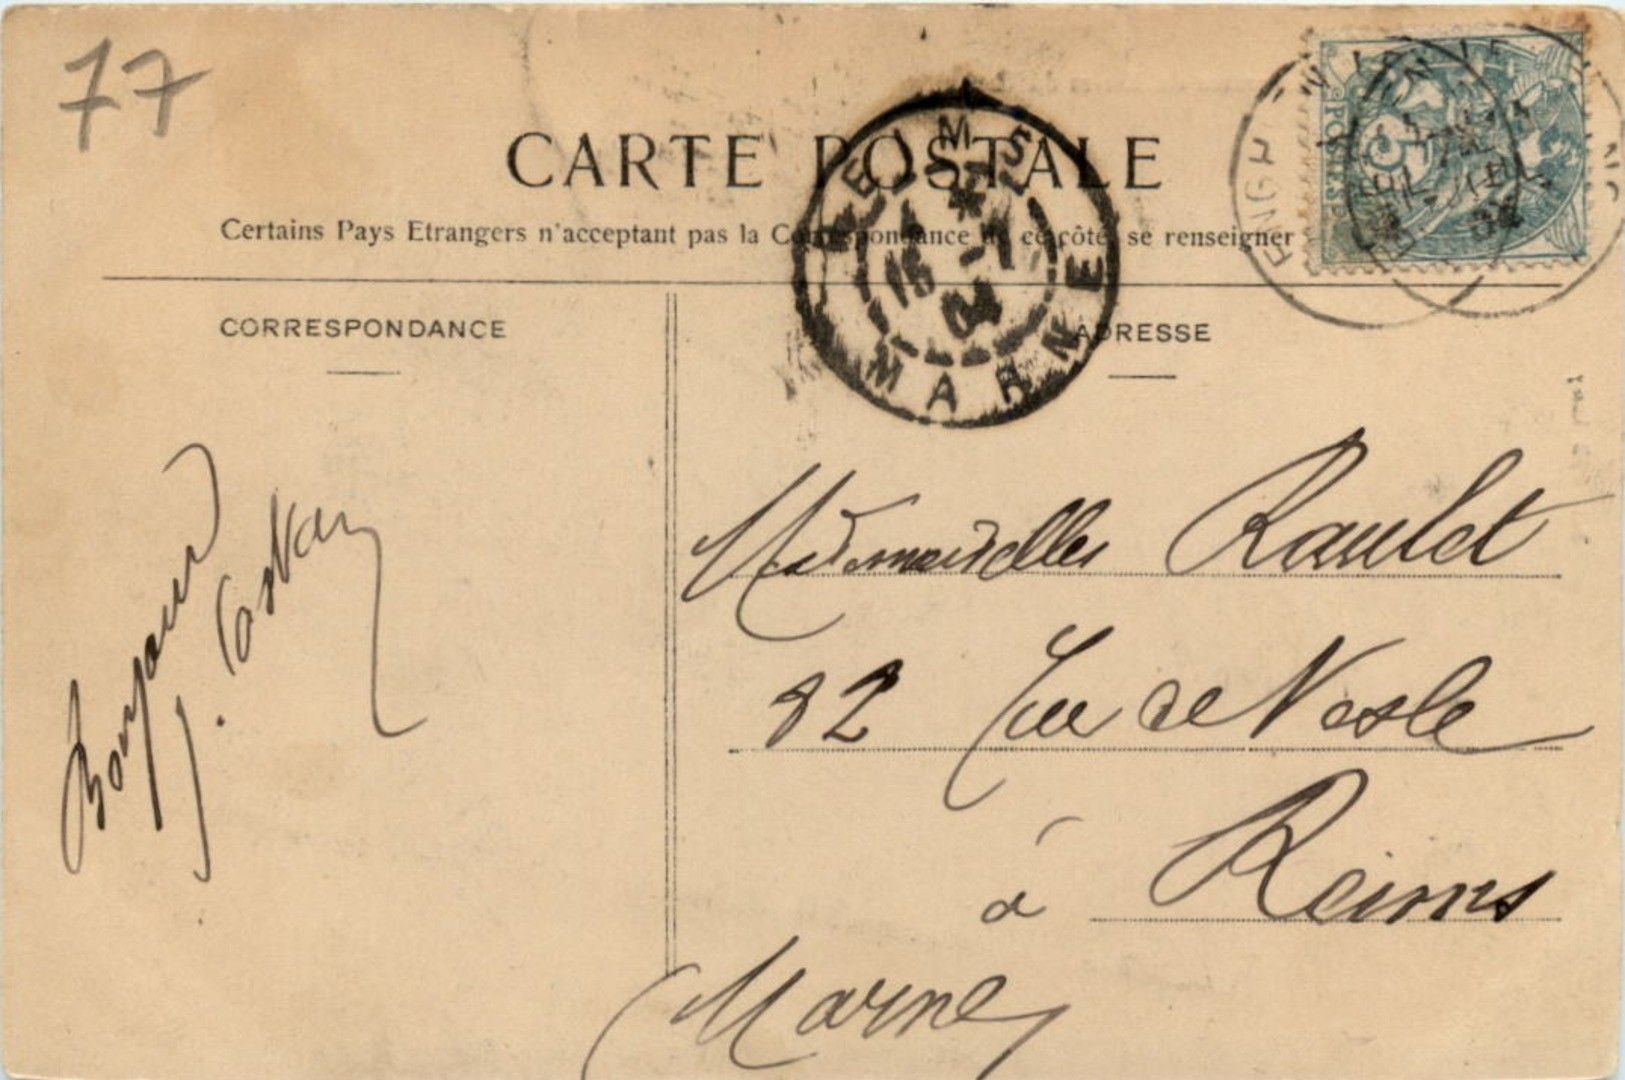 77
CARTE POSTALE
Certains Pays Etrangers n'acceptant pas la Correspondance de ce côté, se renseigner
REIMS
16 -7
04
MARNE
POSTES
CORRESPONDANCE
ADRESSE
Bonjour
J.
Mademoiselles Raulet
82 Rue de Nesle
à Reims
Marne